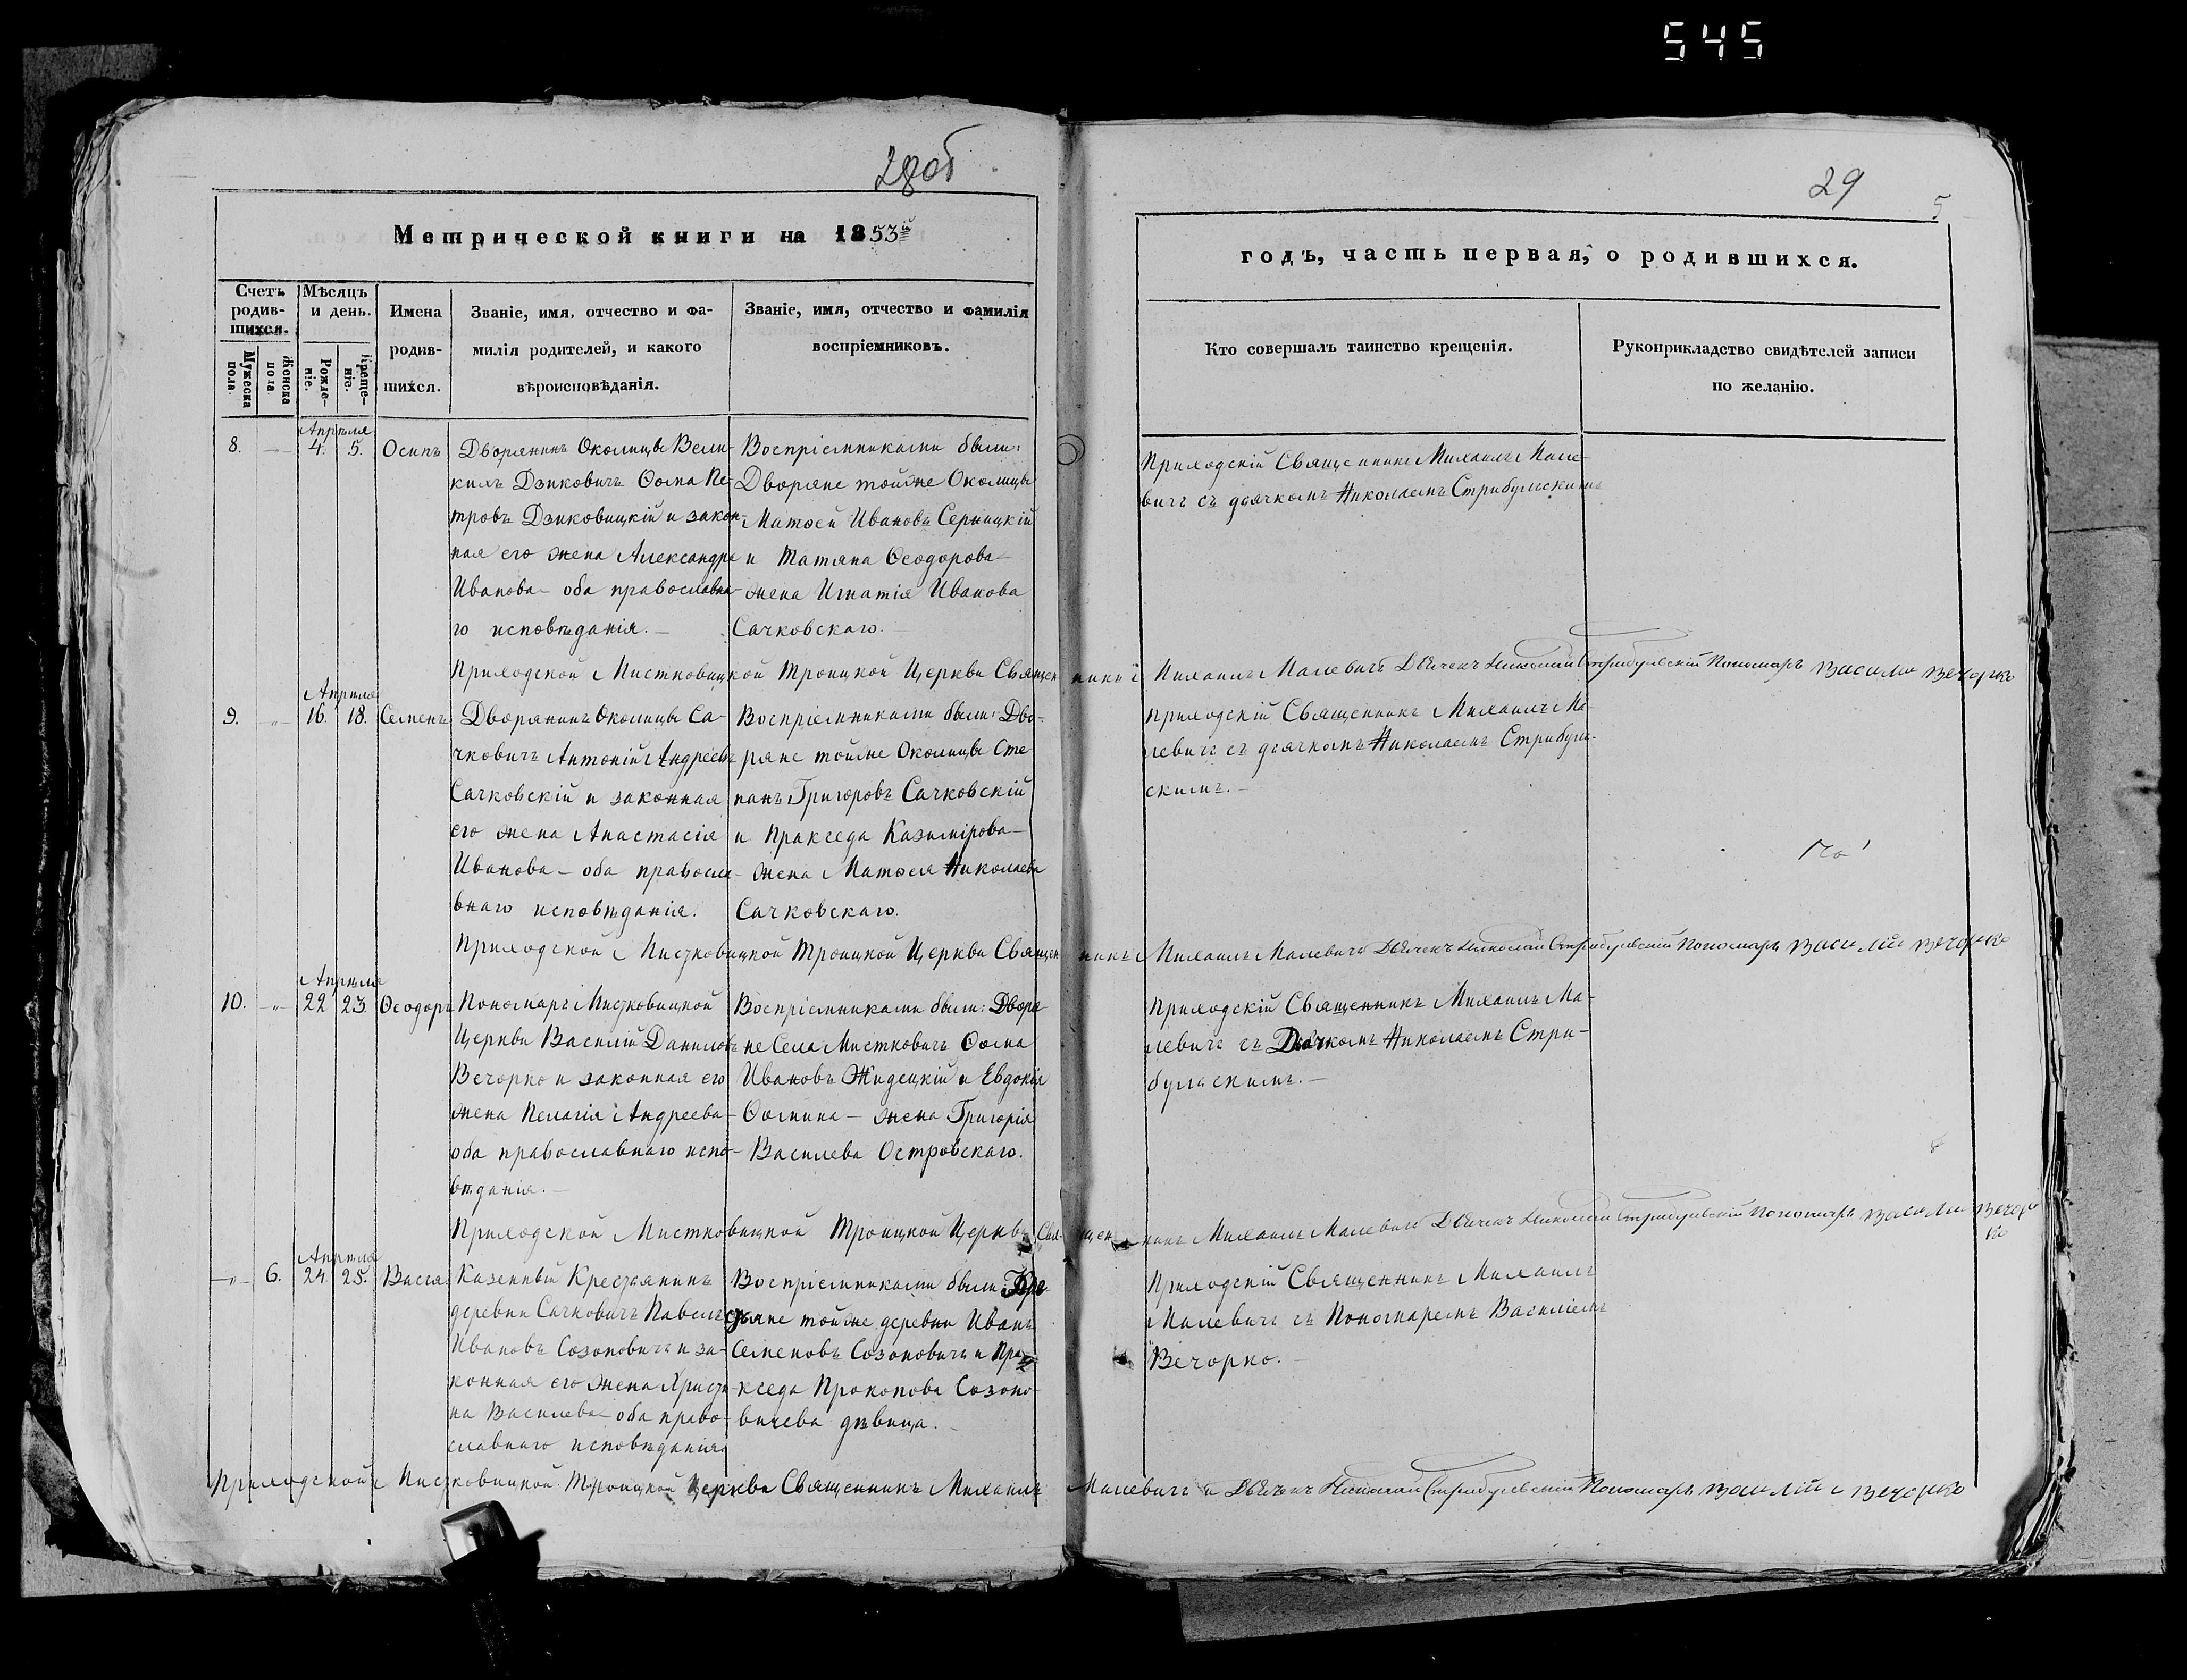 545
28об
29
5
Метрической книги на 1853й
годъ, часть первая, о родившихся.
Счетъ родившихся.
Мужеска пола.
Женска пола.
Мѣсяцъ и день.
Рожденіе.
Крещеніе.
Имена родившихся.
Званіе, имя, отчество и фамилія родителей, и какого вѣроисповѣданія.
Званіе, имя, отчество и фамилія воспріемниковъ.
Кто совершалъ таинство крещенія.
Рукоприкладство свидѣтелей записи по желанію.
Апрѣля
8. — 4. 5. Осипъ
Дворянинъ Околицы Вели-
кихъ Дзиковичъ Ѳома Пе-
тровъ Дзиковицкій и закон-
ная его жена Александра
Иванова — оба православна-
го исповѣданія. —
Воспріемниками были:
Дворяне тойже Околицы
Матѳей Ивановъ Серницкій
и Татяна Ѳеодорова —
жена Игнатія Иванова
Сачковскаго. —
Приходскій Священникъ Михаилъ Мале-
вичъ съ дьячкомъ Николаемъ Стрибульскимъ
Приходской Мистковицкой Троицкой Церкви Священникъ Михаилъ Малевичъ Дьячекъ Николай Стрибульскій Пономарь Василій Вечорко
Апрѣля
9. „ 16. 18. Семенъ
Дворянинъ Околицы Са-
чковичъ Антоній Андреевъ
Сачковскій и законная
его жена Анастасія
Иванова — оба правосла-
внаго исповѣданія.
Воспріемниками были: Дво-
ряне тойже Околицы Сте
панъ Григоровъ Сачковскій
и Пракседа Казимірова —
жена Матѳея Николаева
Сачковскаго.
Приходскій Священникъ Михаилъ Ма-
левичъ съ дьячкомъ Николаемъ Стрибуль-
скимъ. —
Приходской Мистковицкой Троицкой Церкви Священникъ Михаилъ Малевичъ Дьячекъ Николай Стрибульскій Пономарь Василій Вечорко
Апрѣля
10. „ 22 23. Ѳеодоръ
Пономарь Мистковицкой
Церкви Василій Даниловъ
Вечорко и законная его
жена Пелагія Андреева —
оба православнаго испо-
вѣданія. —
Воспріемниками были: Дворя
не Села Мистковичъ Ѳома
Ивановъ Жидецкій и Евдокія
Ѳомина — жена Григорія
Василева Островскаго.
Приходскій Священникъ Михаилъ Ма-
левичъ съ Дьячкомъ Николаемъ Стри-
бульскимъ. —
Приходской Мистковицкой Троицкой Церкви Священникъ Михаилъ Малевичъ Дьячекъ Николай Стрибульскій Пономарь Василій Вечорко
Апрѣля
„ 6. 24. 25. Васса
Казенный Крестянинъ
деревни Сачковичъ Павелъ
Ивановъ Созоновичъ и за-
конная его жена Христи-
на Василева — оба право-
славнаго исповѣданія
Воспріемниками были: Кре
стьяне тойже деревни Иванъ
Семеновъ Созоновичъ и Пра-
кседа Прокопова Созоно-
вичева дѣвица. —
Приходскій Священникъ Михаилъ
Малевичъ съ Пономаремъ Василіемъ
Вечорко. —
Приходской Мистковицкой Троицкой Церкви Священникъ Михаилъ Малевичъ Дьячекъ Николай Стрибульскій Пономарь Василій Вечорко